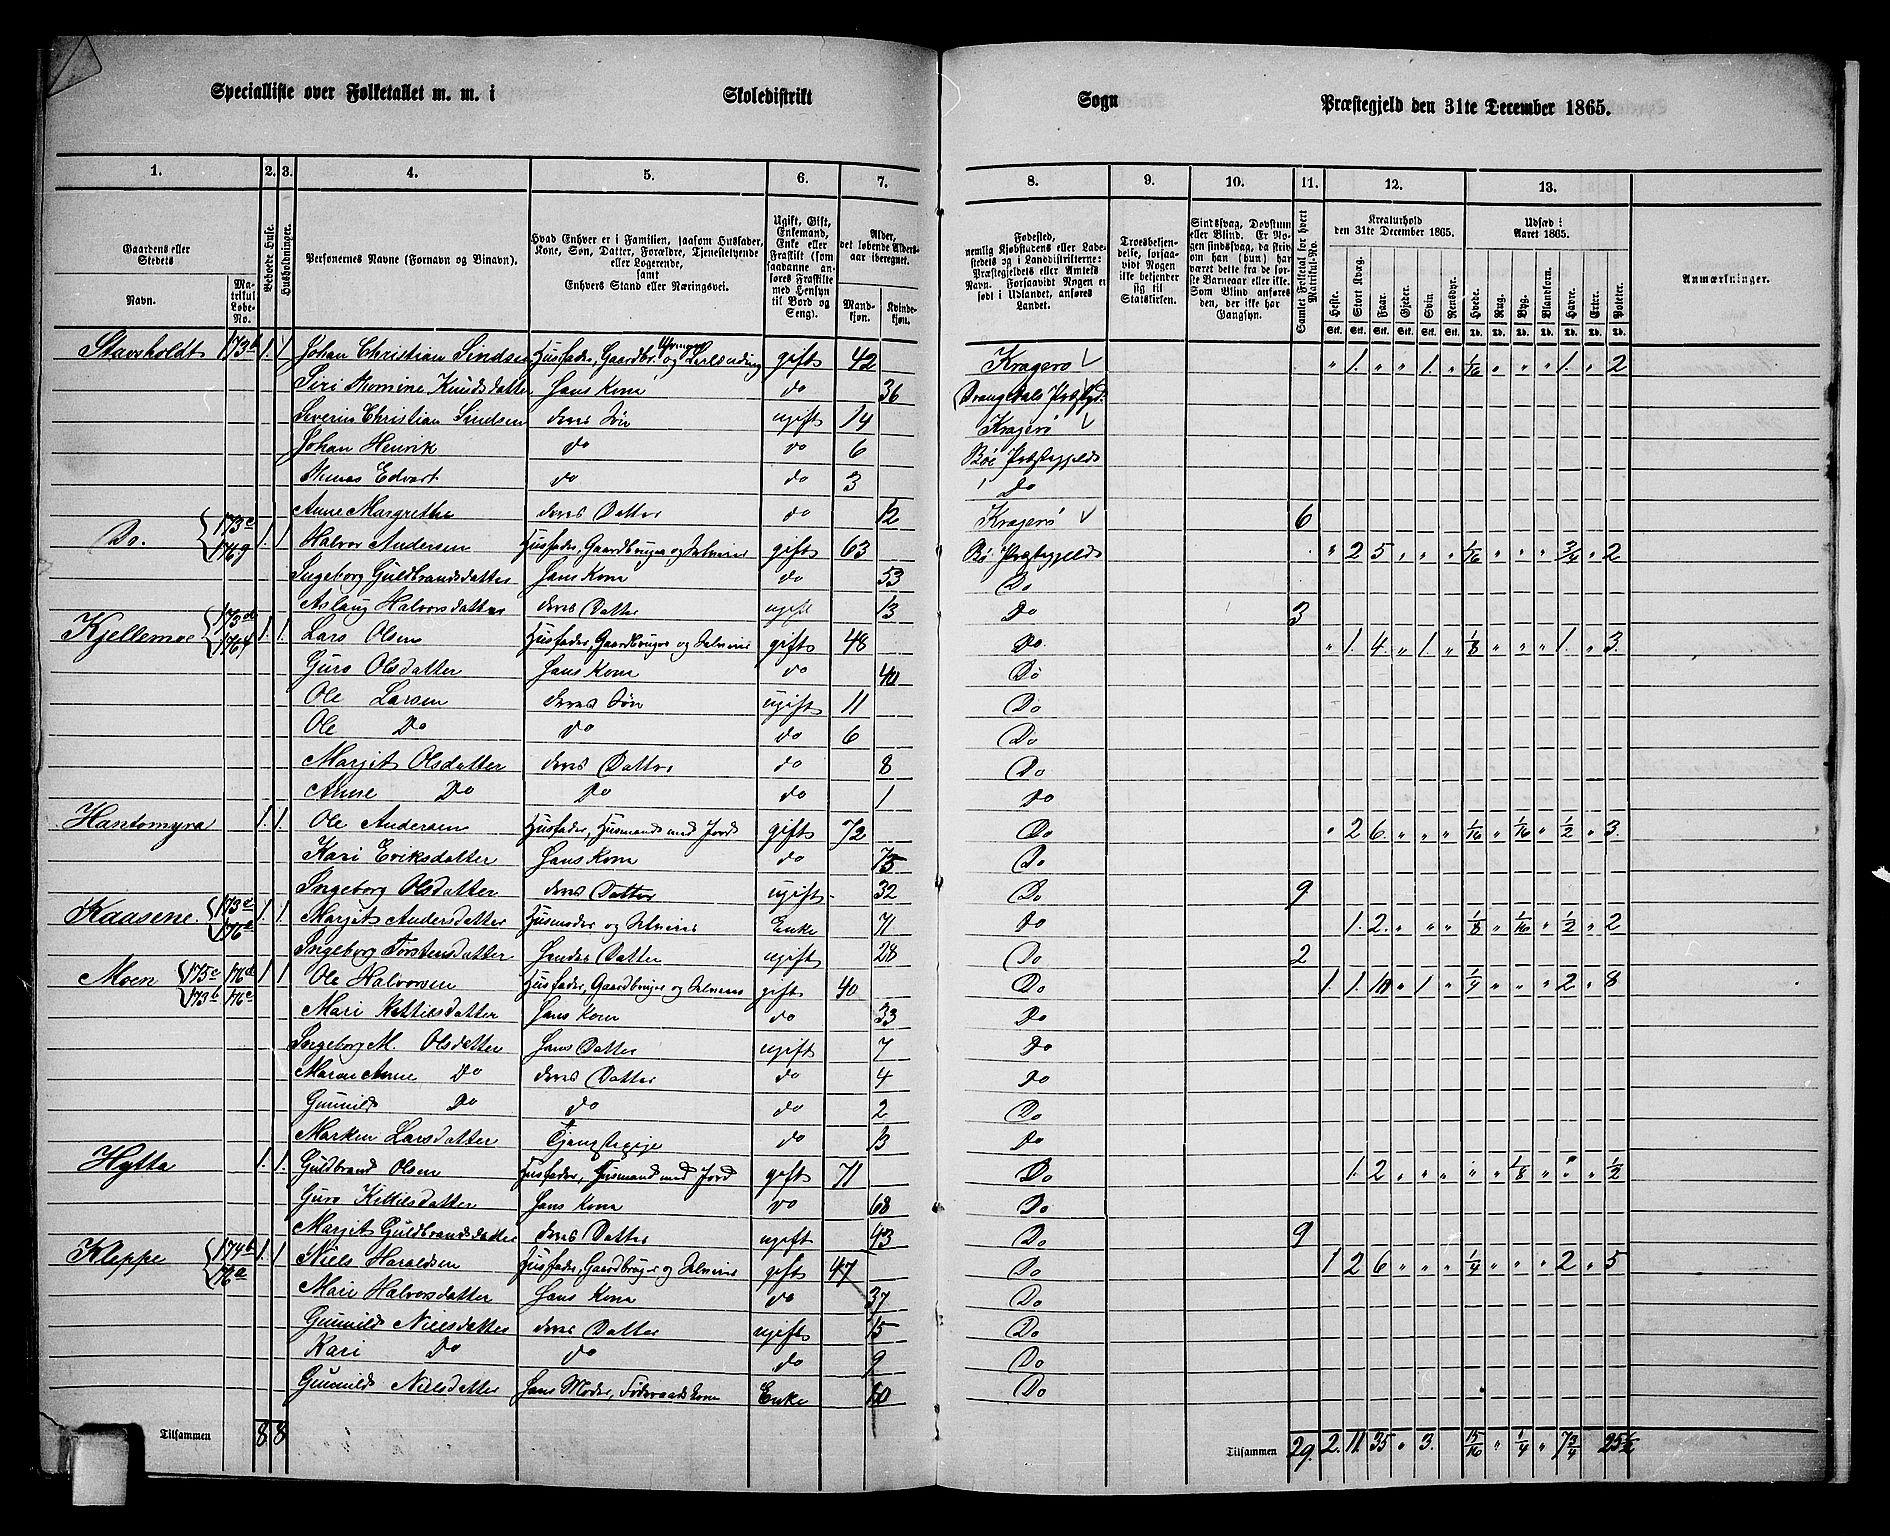 Specialliste over Folketallet m. m. i Skoledistrikt Sogn Præstegjeld den 31te December 1865.
1. 2. 3. 4. 5. 6. 7. 8. 9. 10. 11. 12. 13.
Gaardens eller Stedets
Navn.
Matrikul Løbe-No.
Beboede Huse.
Husholdninger.
Personernes Navne (Fornavn og Binavn).
Hvad Enhver er i Familien, saasom Husfader, Kone, Søn, Datter, Forældre, Tjenestetyende eller Logerende, samt Enhvers Stand eller Næringsvei.
Ugift, Gift, Enkemand, Enke eller Fraskilt (som saadanne anføres Fraskilte med Hensyn til Bord og Seng).
Alder, det løbende Alders-aar iberegnet.
Mandkjøn. Kvindekjøn.
Fødested, nemlig Kjøbstadens eller Ladestedets og i Landdistrikterne: Præstegjeldets eller Amtets Navn. Forsaavidt Nogen er født i Udlandet, anføres Landet.
Troesbekjendelse, forsaavidt Nogen ikke bekjender sig til Statskirken.
Sindssvag, Døvstum eller Blind. Er Nogen sindssvag, da skrives om han (hun) har været dette fra de første Barneaar eller ikke. Som Blind anføres den, der ikke har Gangsyn.
Samlet Folketal for hvert Matrikul-No.
Kreaturhold den 31te December 1865.
Heste. Stort Kvæg. Faar. Gjeder. Svin. Rensdyr.
Udsæd i Aaret 1865.
Hvede. Rug. Byg. Blandkorn. Havre. Erter. Poteter.
Anmærkninger.
Stavsholdt 173b 1. 1. Johan Christian Sindsen Husfader, Gaardbr. og gift 42 Kragerø " 1. " " 1. " 1/16 " " " 1. " 2
Siri Knudsdatter Hans Kone do 36 Drangedals Præstgjd.
Severin Christian Sindsen deres Søn ugift 14 Kragerø
Johan Henrik do do 6 Bøe Præstegjeld
Edvart do do 3 Do
Anne Margrethe deres Datter do 12 Kragerø 6
Do. 173c 176g 1. 1. Halvor Andersen Husfader, Gaardbruger og Selveier gift 63 Bø Præstegjeld " 2 5 " " " 1/16 " " " 3/4 " 2
Ingeborg Guldbrandsdatter Hans Kone do 53 Do
Aslaug Halvorsdatter deres Datter ugift 13 Do 3
Kjellemoe 173d 176f 1. 1. Lars Olsen Husfader, Gaardbruger og Selveier gift 48 Do " 1. 4 " 1 " 1/8 " " " 1. " 3.
Guro Olsdatter Hans Kone do 40 Do
Ole Larsen deres Søn ugift 11 Do
Ole Do do do 6 Do
Margit Olsdatter deres Datter do 8 Do
Anne Do Do do 1 Do
Hantomyra 1. 1. Ole Andersen Husfader, Husmand med Jord gift 72 Do " 2 6 " " " 1/16 " 1/16 " 1/2 " 3.
Kari Eriksdatter Hans Kone do 75 Do
Ingeborg Olsdatter deres Datter ugift 32 Do 9
Kaasene 173e 176 1. 1. Margit Andersdatter Husmoder og Selveier Enke 71 Do 1. 2. " " " 1/8 " 1/16 " 1/2 " 2
Ingeborg Torstensdatter Hendes Datter ugift 28 Do 2
Moen 175c 176d 1 1 Ole Halvorsen Husfader, Gaardbruger og Selveier gift 40 Do 1. 1. 10 " 1 " 1/4 " " " 2 " 8
173b 176c Mari Kettilsdatter Hans Kone do 33 Do
Ingeborg M. Olsdatter Hans Datter ugift 7 Do
Maren Anne Do deres Datter do 4 Do
Gunnild Do do do 2 Do
Marken Larsdatter Tjenstepige do 13 Do
Hytta 1. 1. Guldbrand Olsen Husfader, Husmand med Jord gift 71 Do 1. 2 " " " " " 1/8 " " " 1/2
Guro Kettilsdatter Hans Kone do 68 Do
Margit Guldbrandsdatter deres Datter ugift 43 Do 9
Kleppe 174b 176a 1. 1 Niels Haraldsen Husfader, Gaardbruger og Selveier gift 47 Do 1 2 6 " " " 1/4 " " " 2 " 5
Mari Halvorsdatter Hans Kone do 37 Do
Gunnild Nielsdatter deres Datter ugift 15 Do
Kari Do do do 9 Do
Gunnild Nielsdatter Hans Moder, Føderaadskone Enke Do
Tilsammen 8 8 Tilsammen 29. 2. 11 35 " 3. 15/16 " 1/4 " 7 3/4 25 1/2